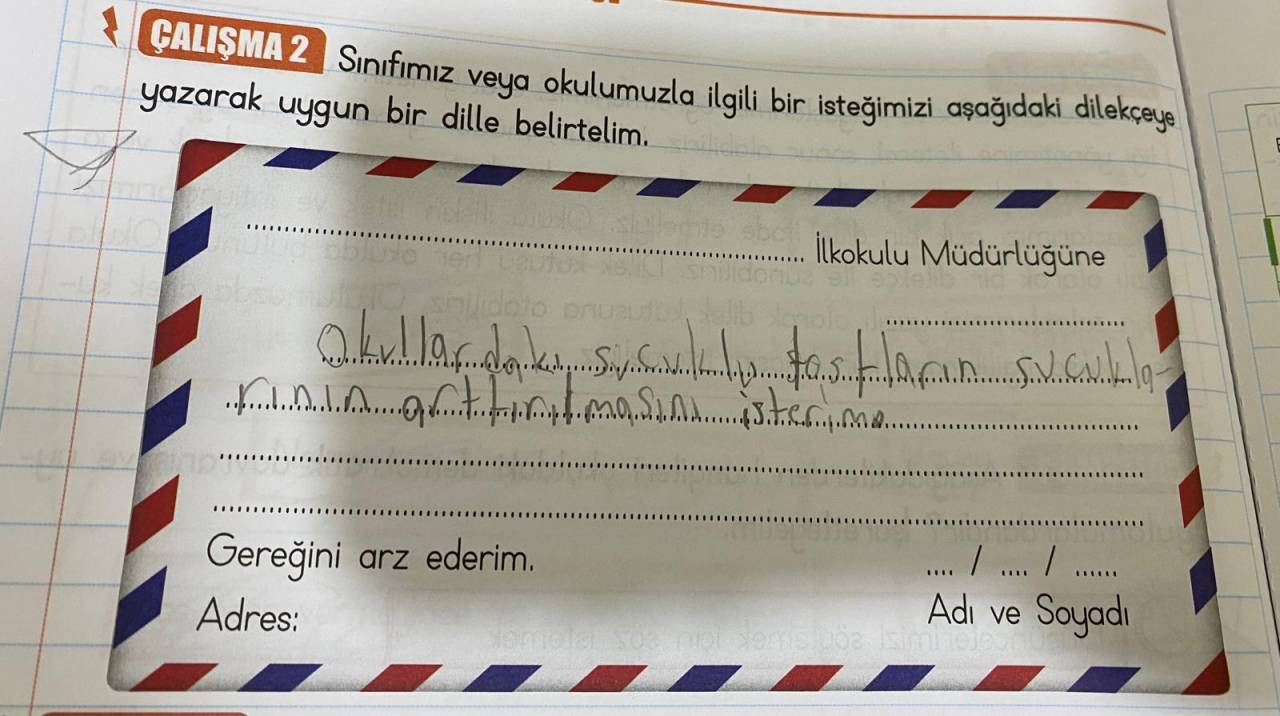 ÇALIŞMA 2 Sınıfımız veya okulumuzla ilgili bir isteğimizi aşağıdaki dilekçeye
yazarak uygun bir dille belirtelim.
İlkokulu Müdürlüğüne
Okullardaki sucuklu tostların sucukla-
rının arttırılmasını isterim.
Gereğini arz ederim.
.... / .... / ......
Adres:
Adı ve Soyadı